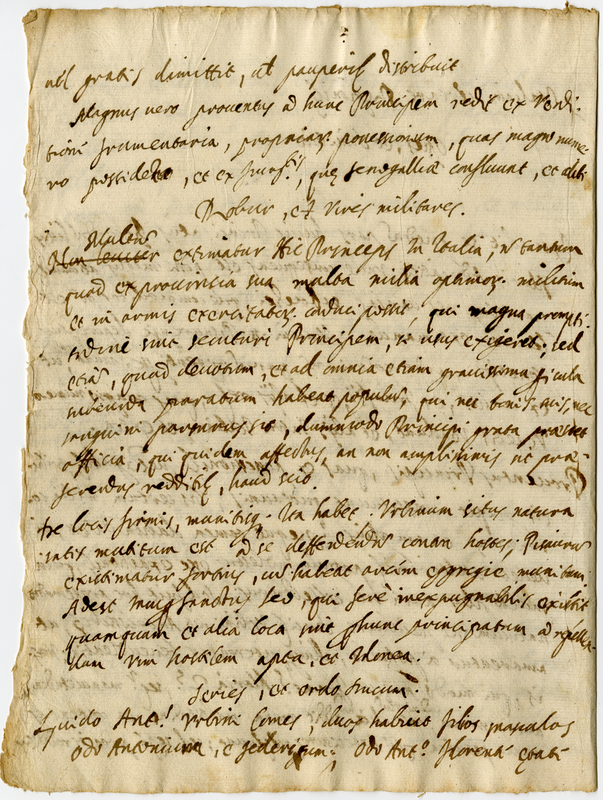 vel gratis dimittit, ut pauperib. distribuit
Magnus vero proventus ad hunc Principem redit ex vendi-
tione frumentaria, propriar. possessionum, quas magno nume-
ro possidet, et ex que Senegalliæ confluunt, et alibi
Robur, et Vires militares.
Multus
Non leviter extimatur Hic Princeps In Italia, n tantum
quod ex provincia sua multa milia optimor. militum
et in armis exercitator. conduci possit, qui magna prompti-
tudine sint secuturi Principem, si usus exigeret; sed
etiã, quod devotum, et ad omnia etiam gravissima picula
subeunda paratum habeat populum, qui nec bonis suis, nec
sanguini parsurus sit, dummodo Principi grata præstet
officia, qui quidem affectus, an non amplissimis sit præ-
ferendus redditib, haud scio.
De locis firmis, munitisq. Ita habet. Urbinum situs natura
satis munitum est ad se deffendendum contra hostes; Pisaurus
existimatur fortius, cum habeat arcem egregie munitam.
Adest Sanctus Leo, qui ferè inexpugnabilis existit
quamquam et alia loca sint p hunc principatum ad repellen-
dam vim hostilem apta, et Idonea.
Series, et ordo Ducum.
Guido Ant.s Urbini Comes, duos habuit filios masculos
Odo Antonium, et Federicum; Odo Ant.s